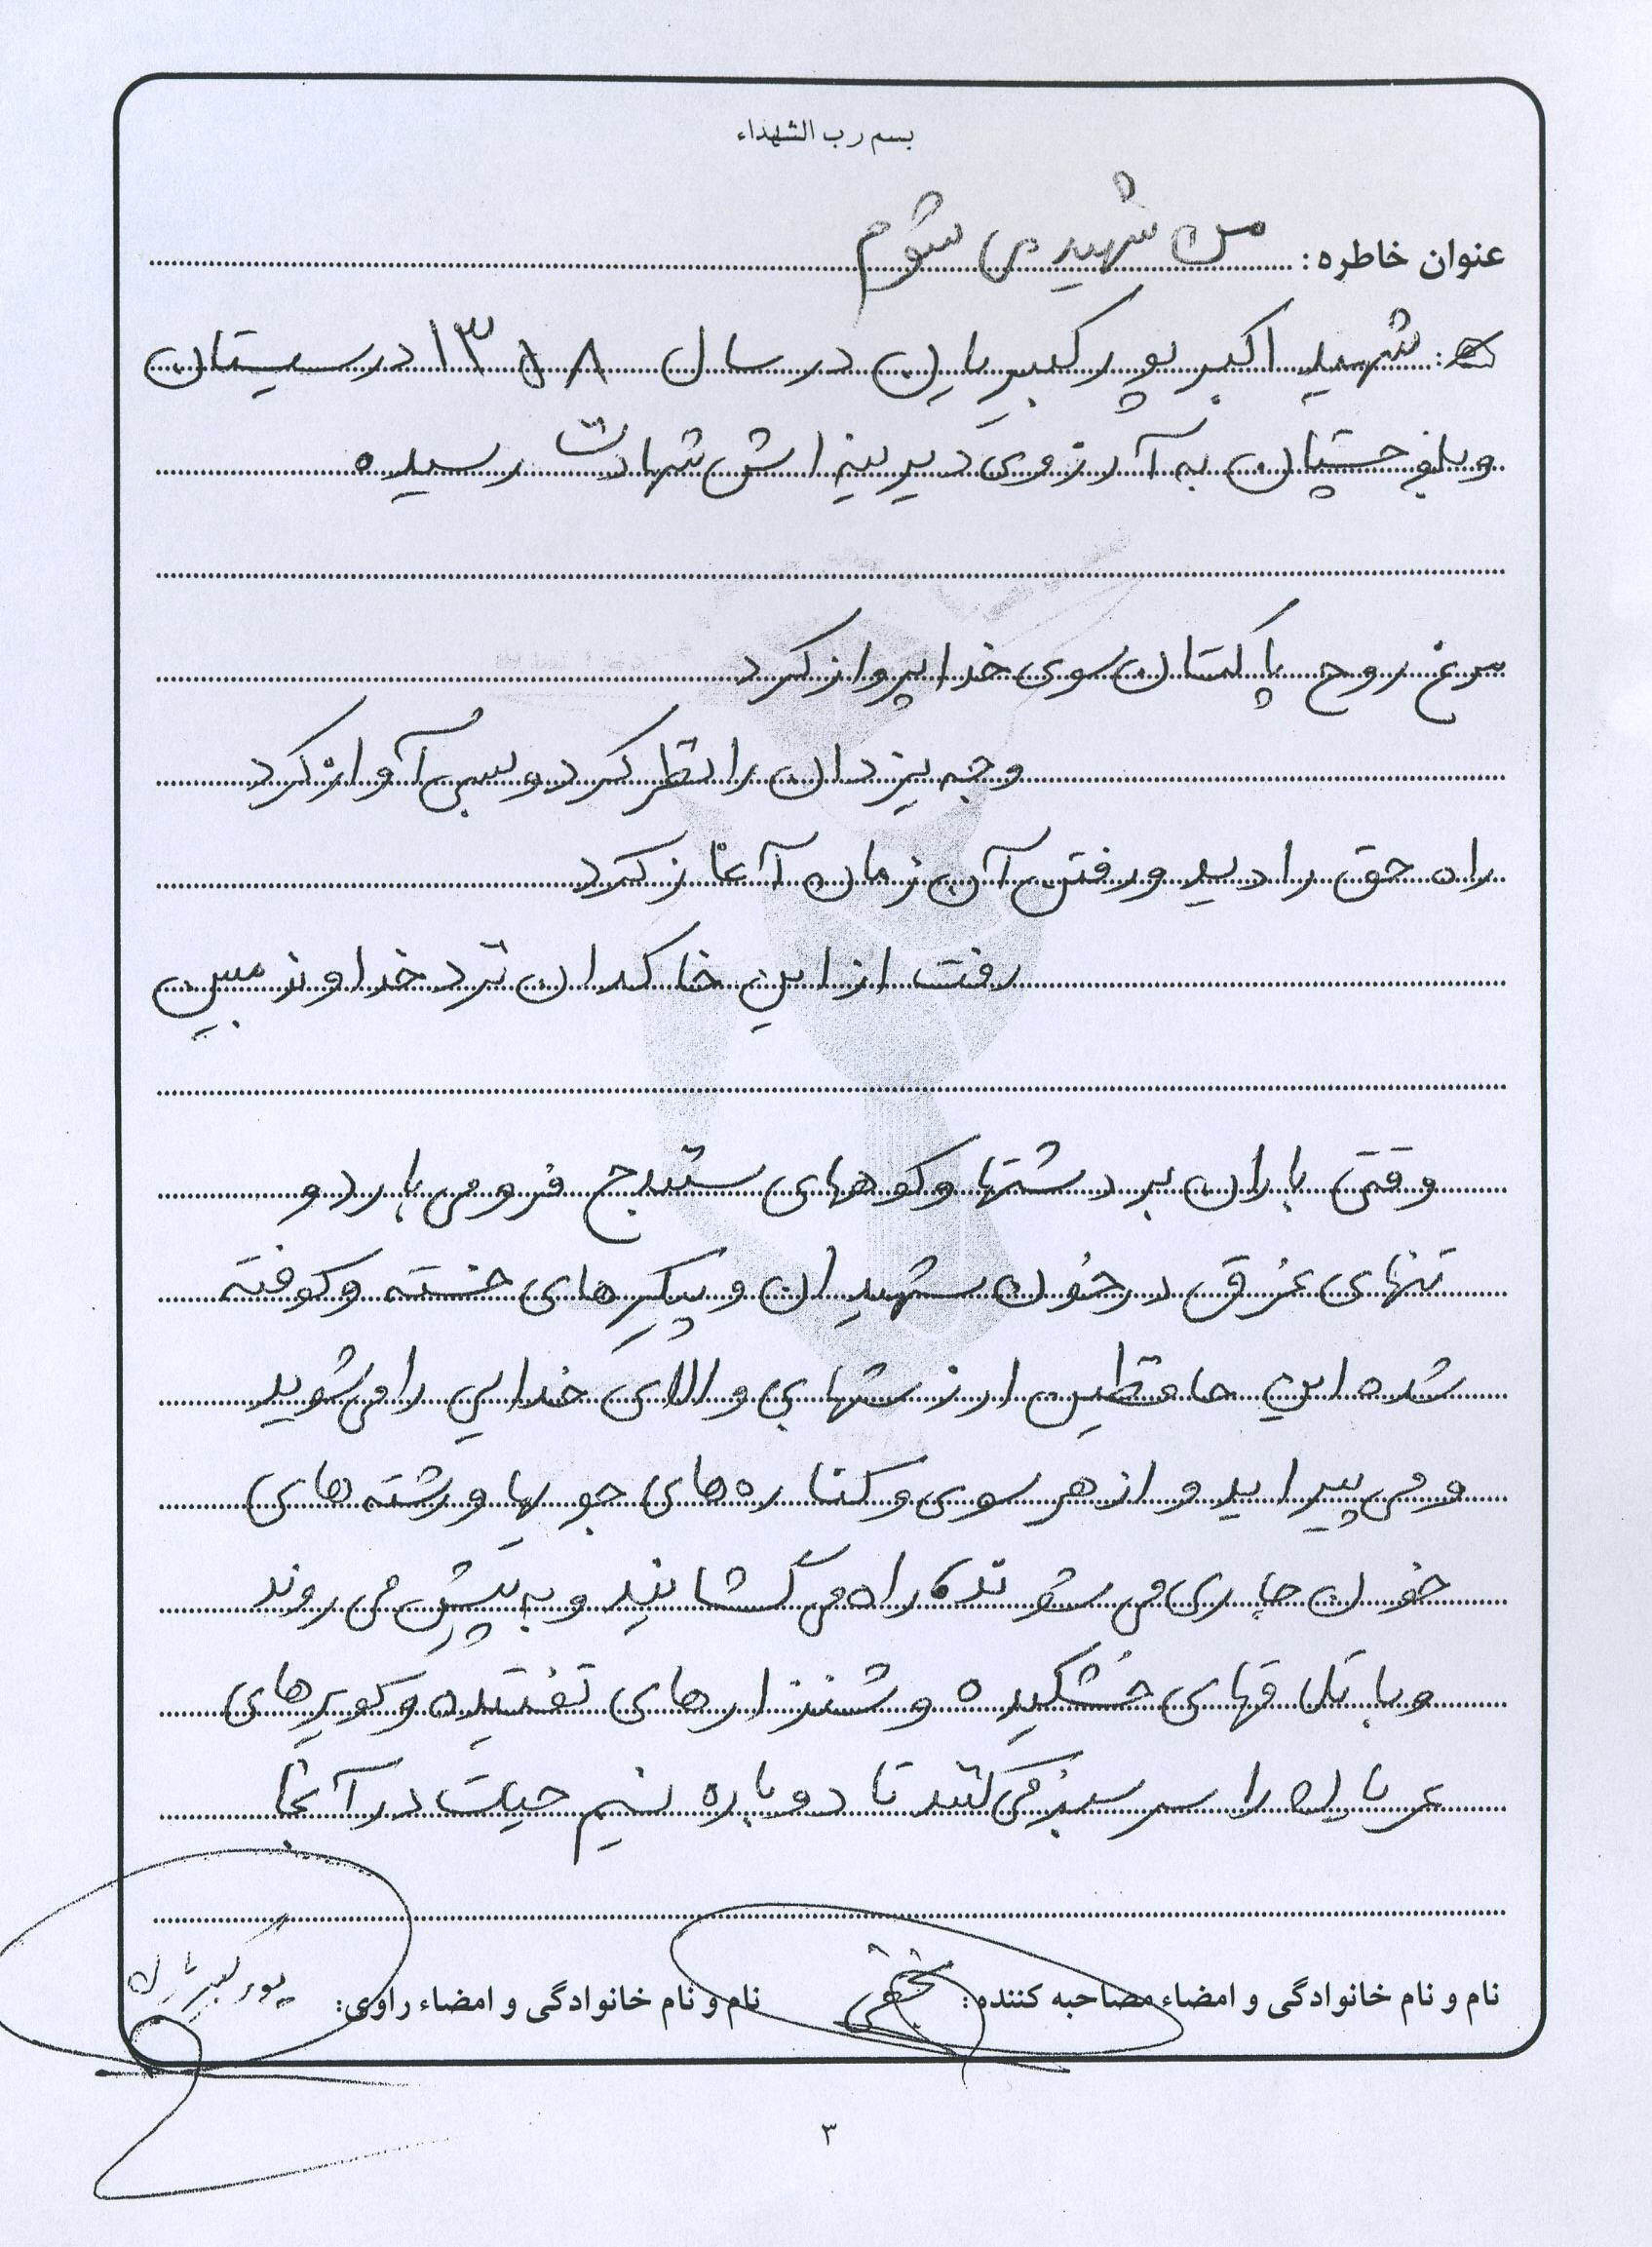 بسم رب الشهداء
عنوان خاطره: من شهید می شوم
شهید اکبر پور کبیریان در سال ۱۳۵۸ در سیستان
و بلوچستان به آرزوی دیرینه اش شهادت رسیده
مرغ روح پاکتان سوی خدا پرواز کرد
وجه یزدان را نظر کرد و بسی آواز کرد
راه حق را دید و رفتن آن زمان آغاز کرد
رفت از این خاکدان نزد خداوند مبین
وقتی باران بر دشتها و کوههای سنندج فرو می بارد و
تنهای غرق در خون شهیدان و پیکرهای خسته و کوفته
شده این حافظین ارزشهای والای خدایی را می شوید
و می پیراید و از هر سوی و کناره های جویها و رشته های
خون جاری می شوند، راه می گشایند و به پیش می روند
و باتلاقهای خشکیده و شنزارهای تفتیده و کویرهای
عریان را سرسبز می کنند تا دوباره نسیم حیات در آنجا
نام و نام خانوادگی و امضاء مصاحبه کننده: نام و نام خانوادگی و امضاء راوی: پور کبیریان
۳